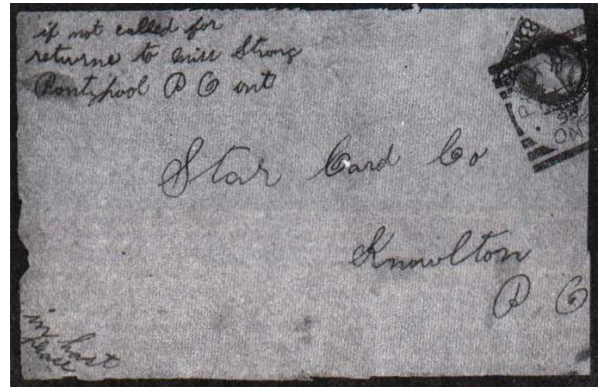 if not called for
returne to miss Strong
Pontypool P O ont
Star Card Co
Knowlton
P Q
in hast
please